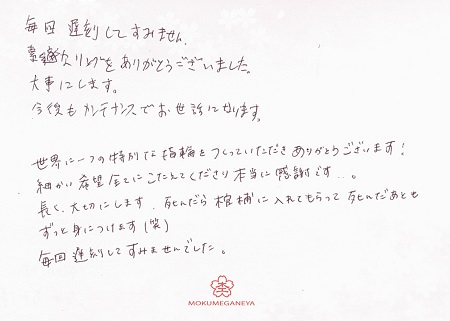 毎回 遅刻してすみません。
素敵なリングをありがとうございました。
大事にします。
今後もメンテナンスでお世話になります。
世界に一つの特別な指輪をつくっていただきありがとうございます!
細かい希望全てにこたえてくださり本当に感謝です…。
長く、大切にします。死んだら棺桶に入れてもらって死んだあとも
ずっと身につけます(笑)
毎回遅刻してすみませんでした。
MOKUMEGANEYA